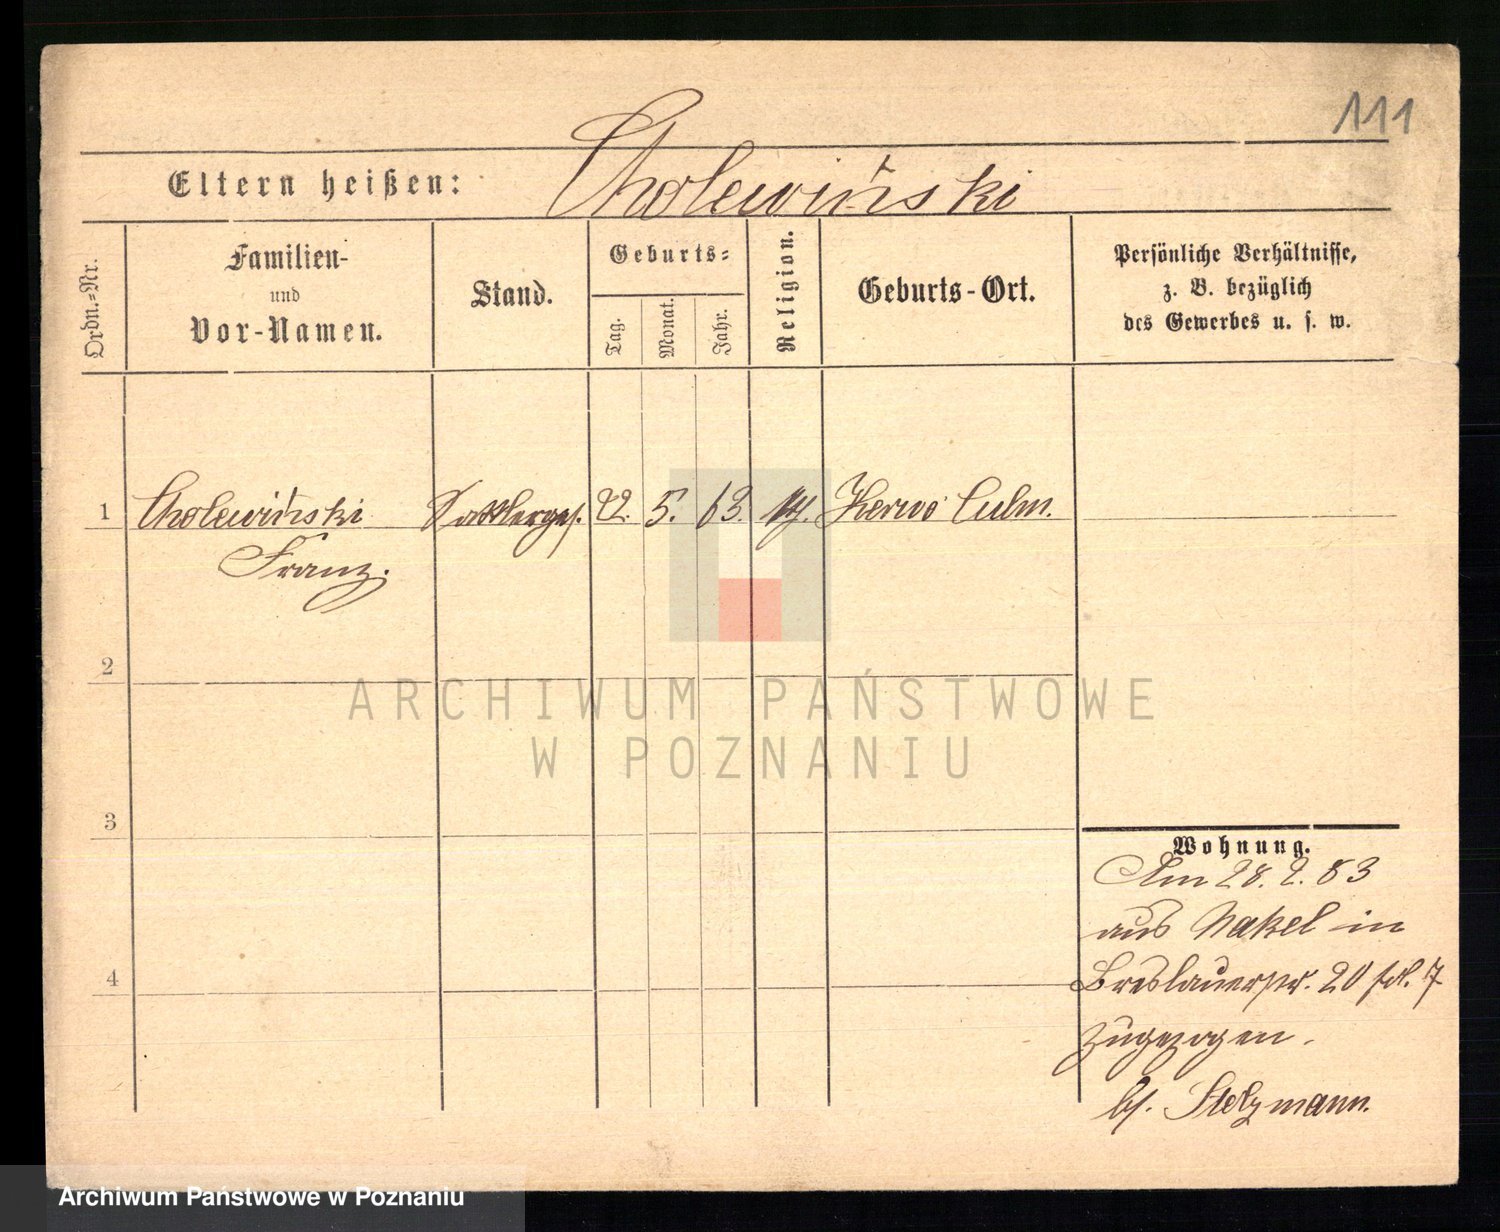 111
Eltern heißen: Cholewiński
Ordn.-Nr.
Familien-
und
Vor-Namen.
Stand.
Geburts-
Tag.
Monat.
Jahr.
Religion.
Geburts-Ort.
Persönliche Verhältnisse,
z. B. bezüglich
des Gewerbes u. s. w.
1 Cholewiński Sattlerges. 22. 5. 63. Culm.
Franz.
2
3
4
Wohnung.
Am 28. 2. 83
aus Nakel in
Breslauerstr. 20 7
zugezogen.
b/. Stelzmann.
ARCHIWUM PAŃSTWOWE
W POZNANIU
Archiwum Państwowe w Poznaniu